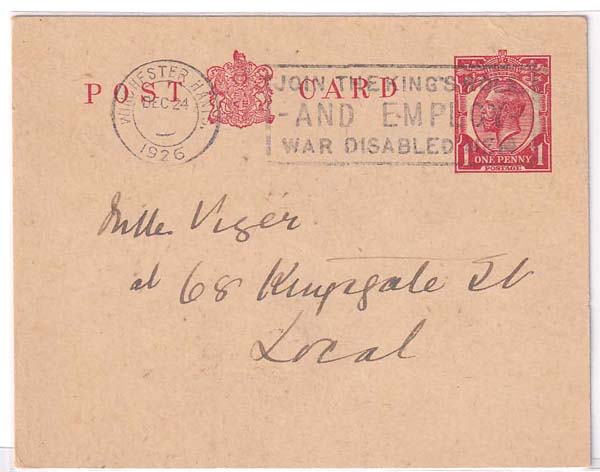 POST CARD
WINCHESTER HANTS.
DEC 24
1926
JOIN THE KING'S
-AND EMPLOY
WAR DISABLED
ONE PENNY
1 1
POSTAGE
Mlle. Viger
at 68 Kingsgate St
Local